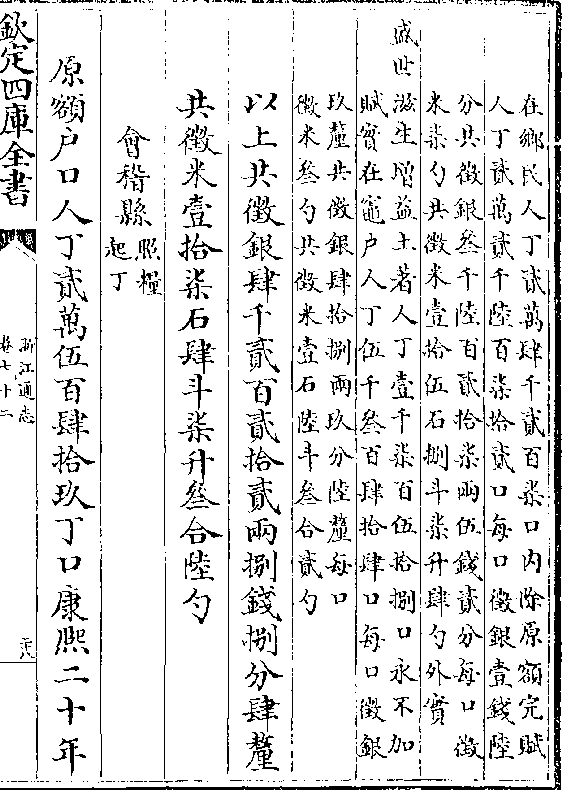 在鄉民人丁貳萬肆千貳百柒口内除原額完賦
人丁貳萬貳千陸百柒拾貳口每口徵銀壹錢陸
分共徵銀叁千陸百貳拾柒兩伍錢貳分每口徵
米柒勺共徵米壹拾伍石捌斗柒升肆勺外實
盛世滋生增益土著人丁壹千柒百伍拾捌口永不加
賦實在竈户人丁伍千叁百肆拾肆口每口徵銀
玖釐共徵銀肆拾捌兩玖分陸釐每口
徵米叁勺共徵米壹石陸斗叁合貳勺
以上共徵銀肆千貳百貳拾貳兩捌錢捌分肆釐
共徵米壹拾柒石肆斗柒升叁合陸勺
會稽縣照糧
起丁
原額户口人丁貳萬伍百肆拾玖丁口康熙二十年
欽定四庫全書
浙江通志
卷七十二